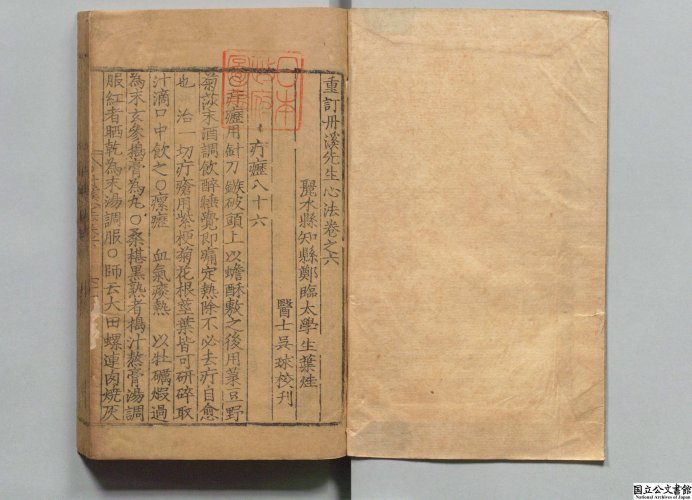 重訂丹溪先生心法卷之六
麗水縣知縣鄭臨太學生葉烓
醫士吳球校刊
疔癧八十六
疔癧用針刀鏃破頭上以蟾酥敷之後用菉豆野
菊莎末酒調飲醉睡覺即痛定熱除不必去疔自愈
也　治一切疔瘡用紫梗菊花根莖葉皆可研碎取
汁滴口中飲之〇瘰癧　血氣痰熱　以牡礪煅過
為末玄參搗膏為丸〇桑椹黑熟者搗汁熬膏湯調
服紅者晒乾為末湯調服〇師云大田螺連肉燒灰
国立公文書館
National Archives of Japan